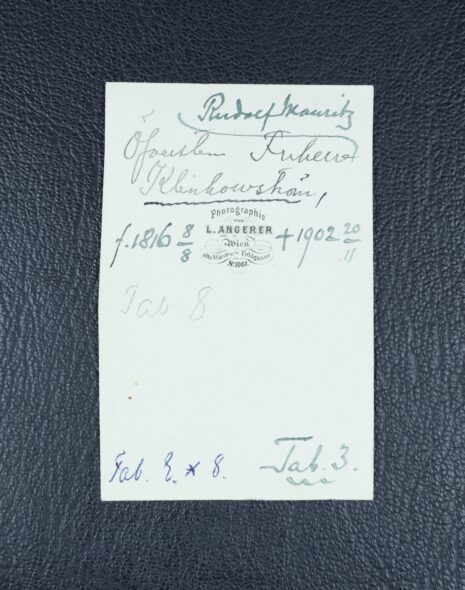 Rudolf Mauritz
Öfversten Friherre
Klinkowström,
Photographie
von
L. ANGERER
Wien
alte Wieden Feldgasse
No. 1061.
f. 1816 8/8
† 1902 20/11
Tab 8
Tab. E. * 8.
Tab. 3.